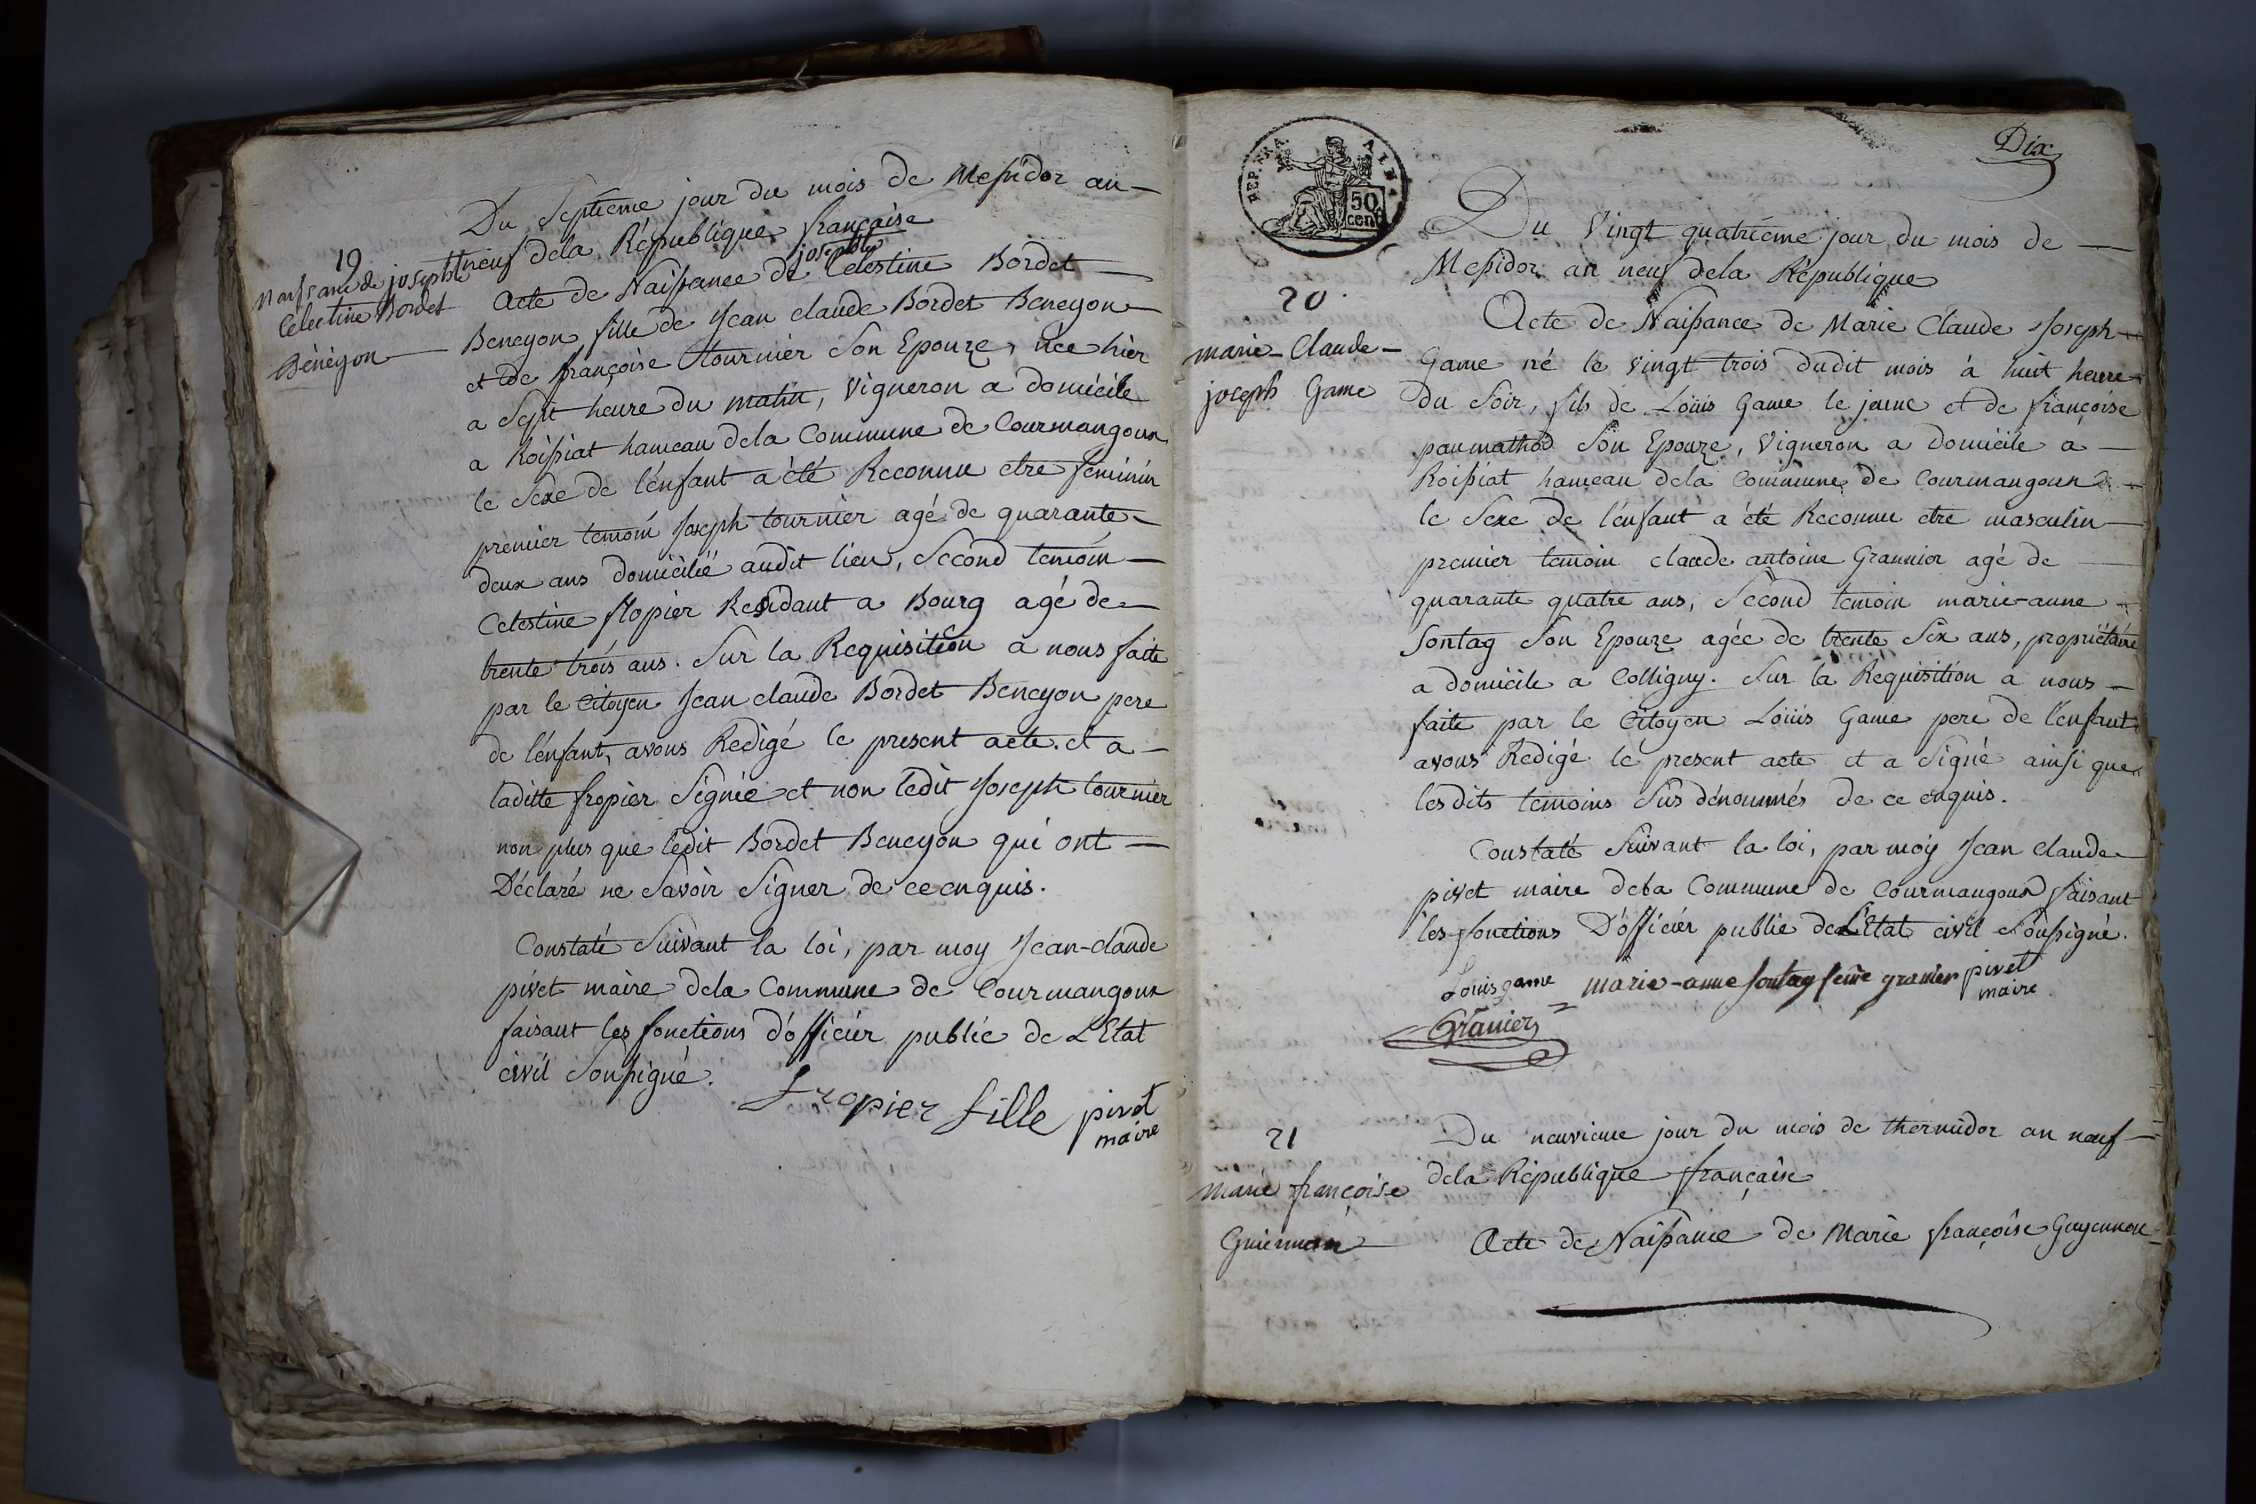 19
naissance de josephte
Celestine Bordet
Bénéyon
Du Septieme jour du mois de Messidor an
neuf dela République française
josephte
Acte de Naissance de Celestine Bordet
Beneyon, fille de Jean claude Bordet Beneyon
et de françoise tournier Son Epouze, née hier
a Sept heure du matin, vigneron a domicile
a Roissiat hameau dela Commune de Courmangoux
le Sexe de l'enfant a été Reconnu etre feminin
premier temoin Joseph tournier agé de quarante
deux ans domicilié audit lieu, Second temoin
Celestine fropier Residant a Bourg agé de
trente trois ans. Sur la Requisition a nous faite
par le Citoyen Jean claude Bordet Beneyon pere
de l'enfant, avons Redigé le present acte. et a
laditte fropier Signée et non ledit Joseph tournier
non plus que ledit Bordet Beneyon qui ont
Déclaré ne Savoir Signer de ce enquis.
Constaté Suivant la loi, par moy Jean-claude
pivet maire dela Commune de Courmangoux
faisant les fonctions d'officier public de L'Etat
civil Soussigné.
fropier fille pivet
maire
REP. FRA
50
cent
Dix
20
marie-Claude-
joseph Game
Du Vingt quatriéme jour du mois de
Messidor an neuf dela République
Acte de Naissance de Marie Claude Joseph
Game né le vingt trois dudit mois à huit heure
du Soir, fils de Loüis Game le jeune et de françoise
paumathod Son Epouze, Vigneron a domicile à
Roissiat hameau dela Commune de Courmangoux
le Sexe de l'enfant a été Reconnu etre masculin
premier temoin claude antoine Grannier agé de
quarante quatre ans, Second temoin marie-anne
Sontag Son Epouze agée de trente Six ans, propriétaire
a domicile a Colligny. Sur la Requisition a nous
faite par le Citoyen Loüis Game pere de l'enfant
avons Redigé le present acte et a Signé ainsi que
lesdits temoins Sus dénommés de ce enquis.
Constaté Suivant la loi, par moy Jean claude
pivet maire dela Commune de Courmangoux faisant
les fonctions D'officier public de L'Etat civil Soussigné.
Louis game marie-anne sontag feme granier pivet
maire
Granier
21
marie françoise
Du neuvieme jour du mois de thermidor an neuf
dela République française
Acte de Naissance de Marie françoise Guyennon